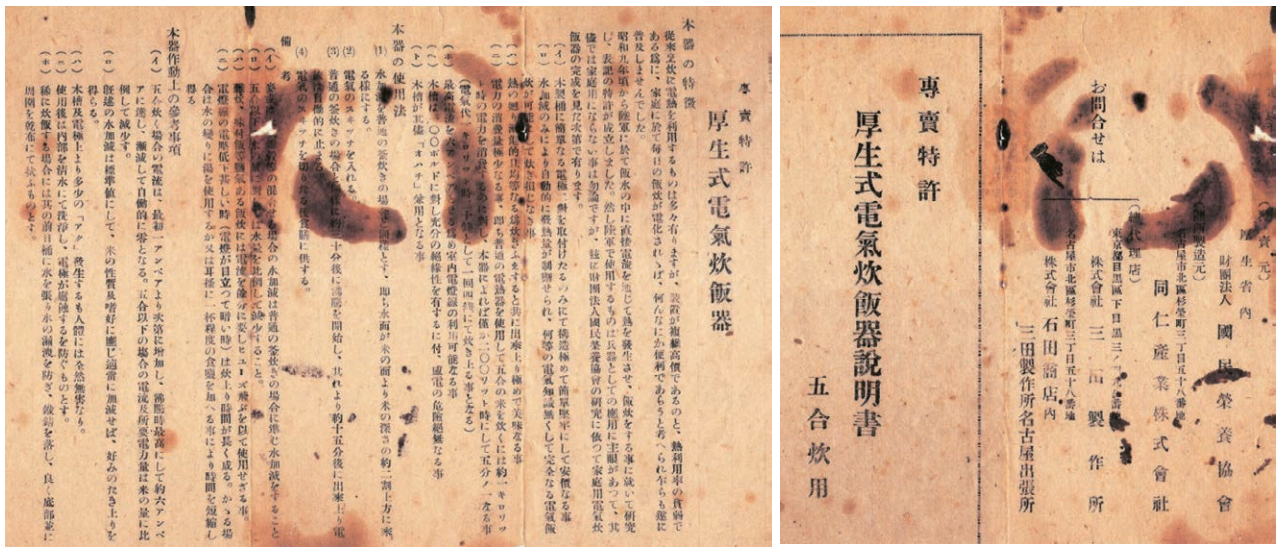 專賣特許
厚生式電氣炊飯器
本器の特徵
從來炊飯に電熱を利用するものは多々有りますが、裝置が複雜高價であるのと、熱利用率の貧弱で
ある爲に、家庭に於て每日の飯炊が電化されゝば、何んなにか便利であらうと考へられ乍らも遂に
普及しませんでした。
昭和九年頃から陸軍に於て飯水の中に直接電流を通じて熱を發生させ、飯炊をする事に就いて硏究
し、表記の特許が成立しました。然し陸軍で使用するものは兵器としての應用に主眼があつて、其
儘では家庭用にならない事は勿論ですが、玆に財團法人國民榮養協會の硏究に依つて家庭用電氣炊
飯器の完成を見た次第で有ります。
(イ) 木製桶に簡單なる電極一對を取付けたるのみにて構造極めて簡單堅牢にして安價なる事
(ロ) 水加減のみにより自動的に發熱量が制御せられ、何等の電氣知識無くして完全なる電氣飯
炊が可
て炊き損じなき事
(ハ) 熱の廻り
均等なる爲炊きふえすると共に出來上り極めて美味なる事
(ニ) 電力の消費量極少なる事、卽ち普通の電熱器を使用して五合の米を炊くには約一キロワッ
ト時の電力を消費するのに對し、本器によれば僅か二〇〇ワット時にして五分ノ一なる事
(ホ)
室內電燈線の利用可能なる事
(ヘ) 木槽は一〇〇ボルトに對し充分の絕緣性を有するに付、感電の危險絕無なる事
(ト) 木槽は其儘「オハチ」兼用となる事
本器の使用法
(1) 水加減を普通の釜炊きの場合と同樣とす、卽ち水面が米の面より米の深さの約二割上方に來
る樣にする。
(2) 電氣のスヰッチを入れる。
(3) 普通の釜炊きの場合
十分後に沸騰を開始し、其れより約十五分後に出來上り電
流は自働的に止まる。
(4) 電氣のスヰッチを切
食膳に供する。
備考
(イ)
場合の水加減は普通の釜炊きの場合に準じ水加減をすること
(ロ) 五合以下
水量を比例して減少すること。
(ハ)
味付飯等鹽氣ある飯炊には電流を餘分に要しヒューズ飛ぶを以て使用せざる事。
(ニ) 電燈線の電壓低下甚しい時(電燈が目立つて暗い時)は炊上り時間が長く成る。かゝる場
合は水の變りに湯を使用するか又は耳搔に一杯程度の食鹽を加へる事により時間を短縮し
得る
本器作動上の參考事項
(イ) 五合炊く場合の電流は、最初一アンペアより次第に增加し、沸騰時最高にして約六アンペ
アに達し、漸減して自働的に零となる。五合以下の場合の電流及所要電力量は米の量に比
例して減少す。
(ロ) 叙述の水加減は標準値にして、米の性質及嗜好に應じ適當に加減せば、好みのたき上りを
得らる。
(ハ) 木槽及電極上より多少の「アク」發生するも人體には全然無害なり。
(ニ) 使用後は內部を淸水にて洗淨し、電極が腐蝕するを防ぐものとす。
(ホ) 稀に炊飯する場合には其の前日桶に水を張り水の漏洩を防ぎ、鐵錆を落し、良く底部並に
周圍を乾布にて拭ふものとす。
お問合せは
(發賣元)
厚生省內
財團法人 國民榮養協會
(
製造元)
名古屋市北區杉榮町三丁目五十八番地
同仁產業株式會社
(總代理店)
東京都目黑區下目黑三ノ
株式會社 三田製作所
名古屋市北區杉榮町三丁目五十八番地
株式會社 石田商店內
三田製作所名古屋出張所
專賣特許
厚生式電氣炊飯器說明書
五合炊用